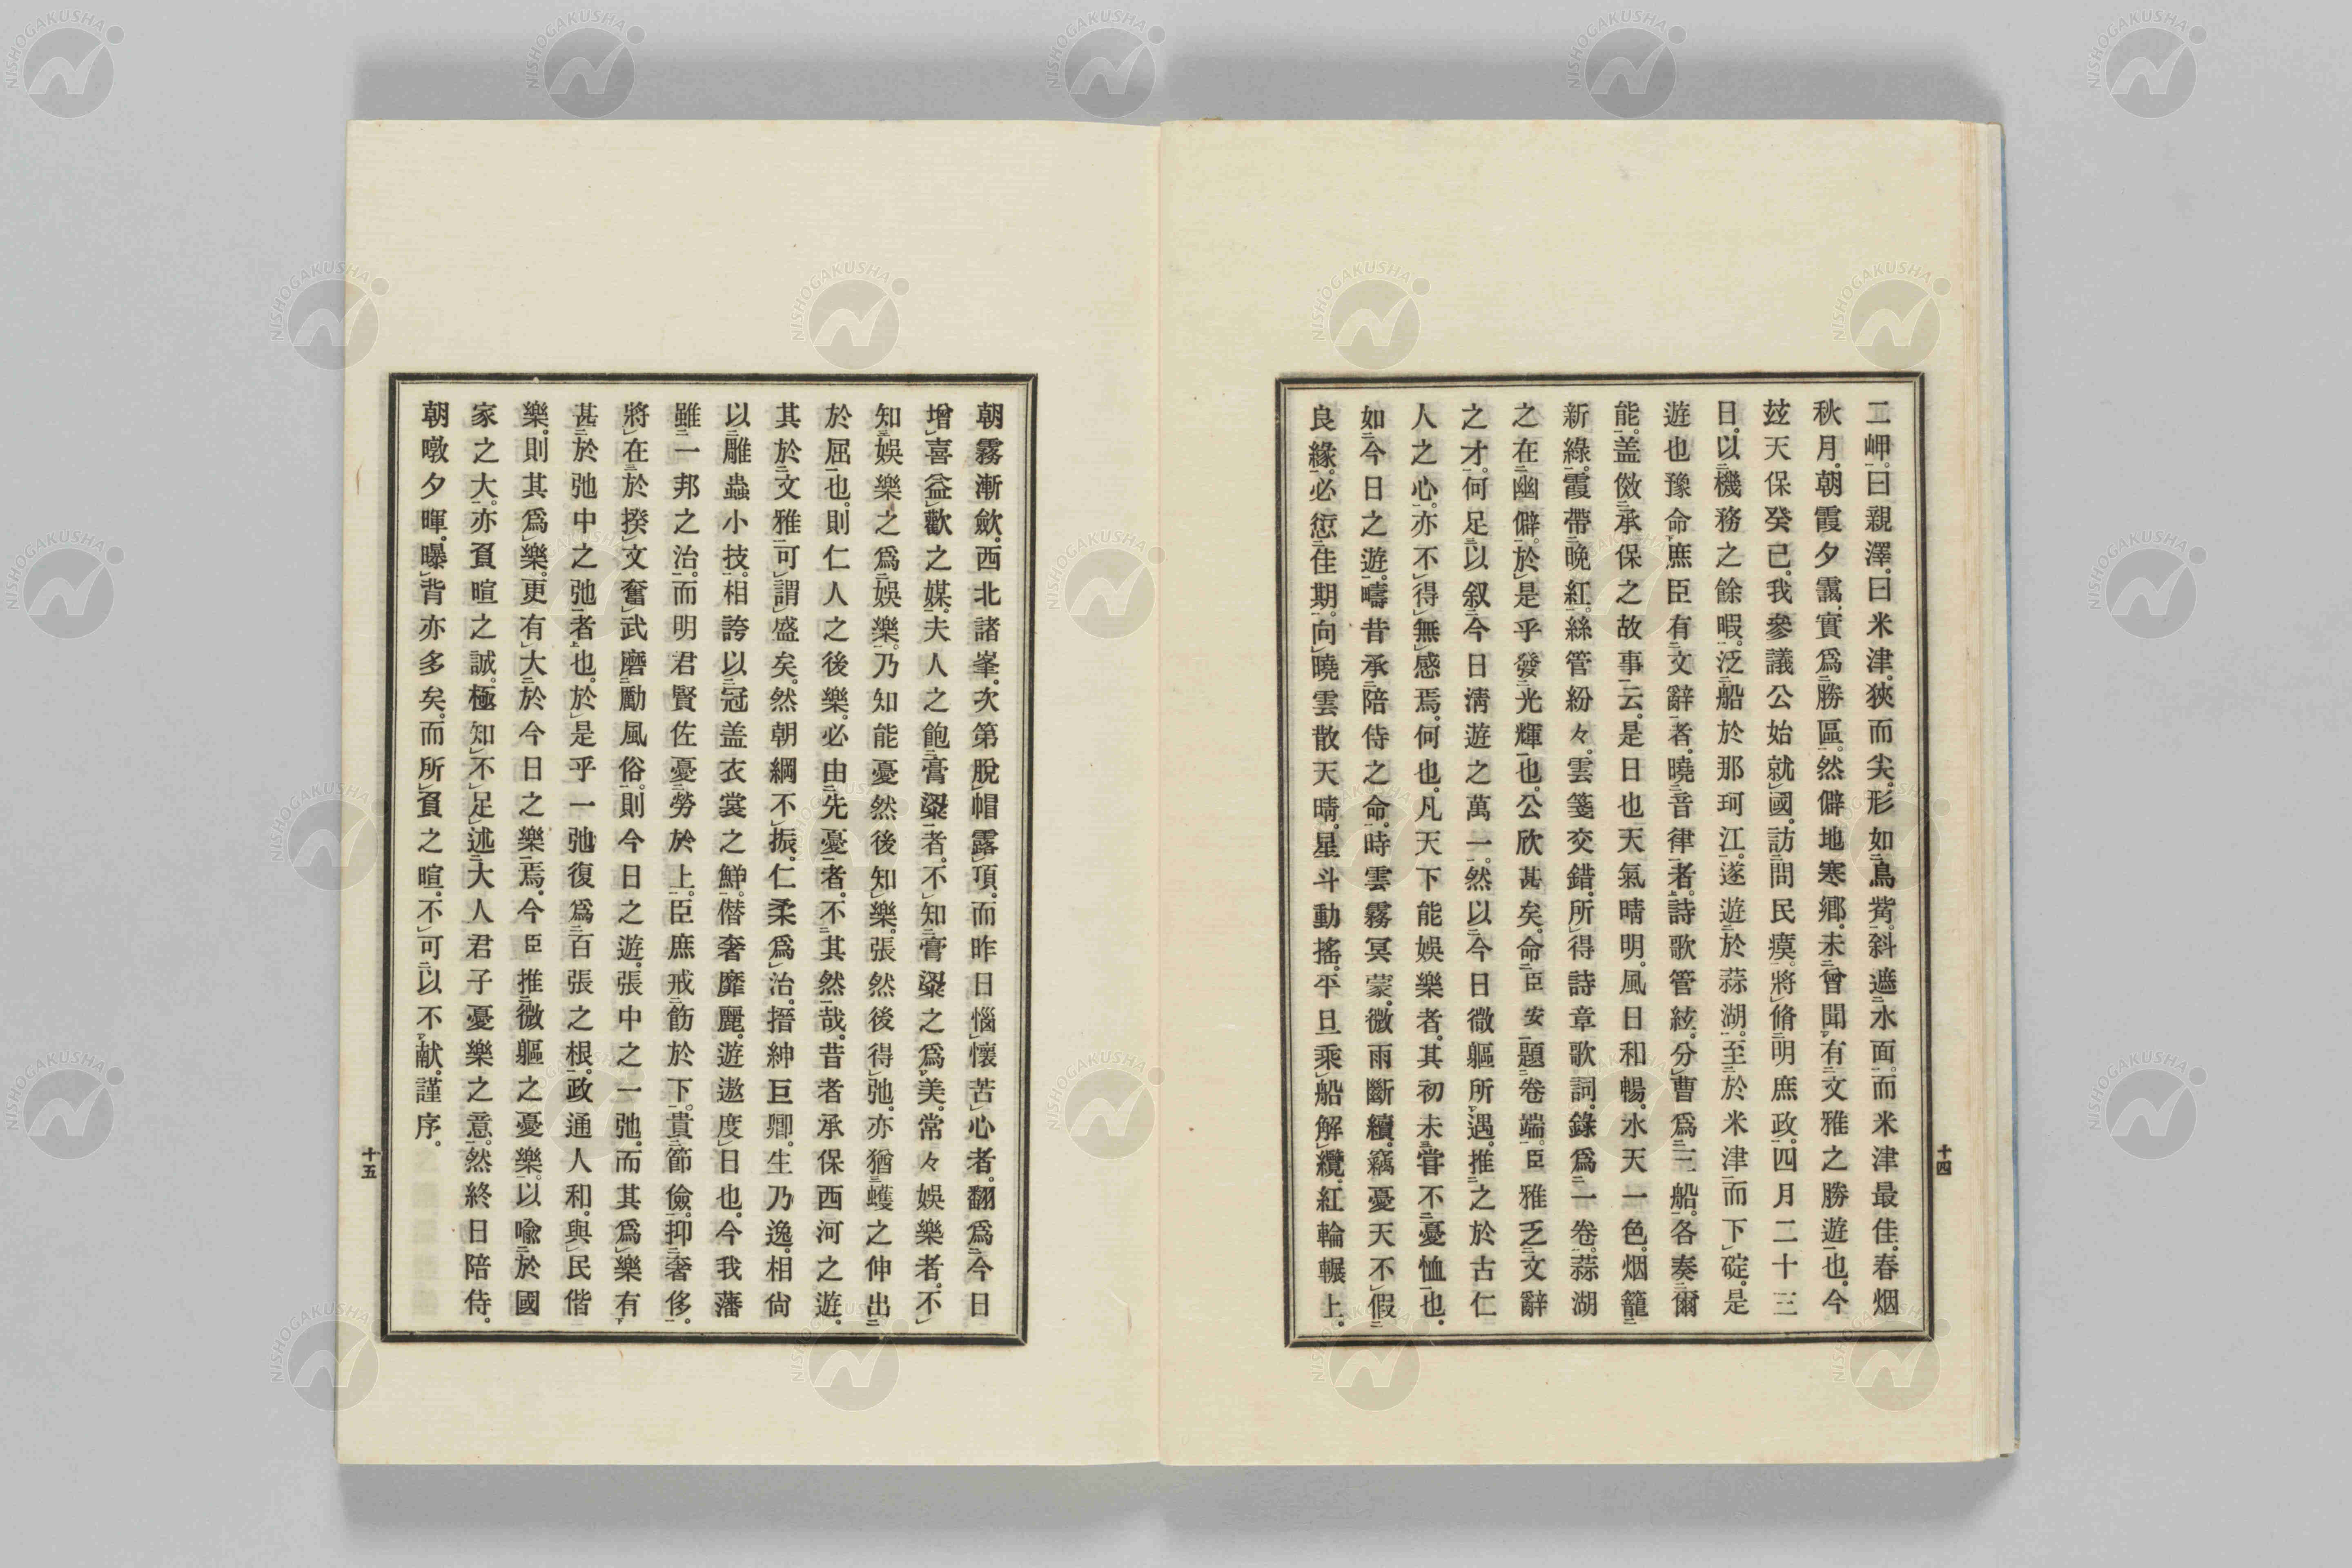 二岬。曰親澤。曰米津。狹而尖。形如鳥觜。斜遮水面。而米津最佳。春烟
秋月。朝霞夕靄。實爲勝區。然僻地寒鄉。未曾聞有文雅之勝遊也。今
玆天保癸已。我參議公始就國。訪問民瘼。將脩明庶政。四月二十三
日。以機務之餘暇。泛船於那珂江。遂遊於蒜湖。至於米津而下碇。是
遊也豫命庶臣有文辭者。曉音律者。詩歌管絃。分曹爲三船。各奏爾
能。盖倣承保之故事云。是日也天氣晴明。風日和暢。水天一色。烟籠
新綠。霞帶晚紅。絲管紛々。雲箋交錯。所得詩章歌詞。錄爲一卷。蒜湖
之在幽僻。於是乎發光輝也。公欣甚矣。命臣安題卷端。臣雅乏文辭
之才。何足以叙今日淸遊之萬一。然以今日微軀所遇。推之於古仁
人之心。亦不得無感焉。何也。凡天下能娛樂者。其初未甞不憂恤也。
如今日之遊。疇昔承陪侍之命。時雲霧冥蒙。微雨斷續。竊憂天不假
良緣。必愆佳期。向曉雲散天晴。星斗動搖。平旦乘船解纜。紅輪輾上。
十四
朝霧漸斂。西北諸峯。次第脫帽露頂。而昨日惱懷苦心者。翻爲今日
增喜益歡之媒。夫人之飽膏粱者。不知膏粱之爲美。常々娛樂者。不
知娛樂之爲娛樂。乃知能憂然後知樂。張然後得弛。亦猶蠖之伸出
於屈也。則仁人之後樂。必由先憂者。不其然哉。昔者承保西河之遊。
其於文雅可謂盛矣。然朝綱不振。仁柔爲治。搢紳巨卿。生乃逸。相尙
以雕蟲小技。相誇以冠盖衣裳之鮮。僭奢靡麗。遊遨度日也。今我藩
雖一邦之治。而明君賢佐憂勞於上。臣庶戒飭於下。貴節儉。抑奢侈。
將在於揆文奮武磨勵風俗。則今日之遊。張中之一弛。而其爲樂有
甚於弛中之弛者也。於是乎一弛復爲百張之根。政通人和。與民偕
樂。則其爲樂。更有大於今日之樂焉。今臣推微軀之憂樂。以喩於國
家之大。亦負暄之誠。極知不足述大人君子憂樂之意。然終日陪侍。
朝暾夕暉。曝背亦多矣。而所負之暄。不可以不献。謹序。
十五
NISHOGAKUSHA